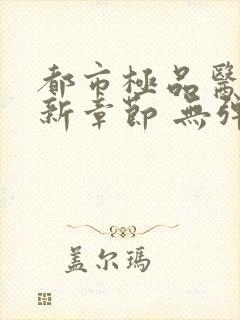 都市極品醫
新章節 無彈
盖尔瑪